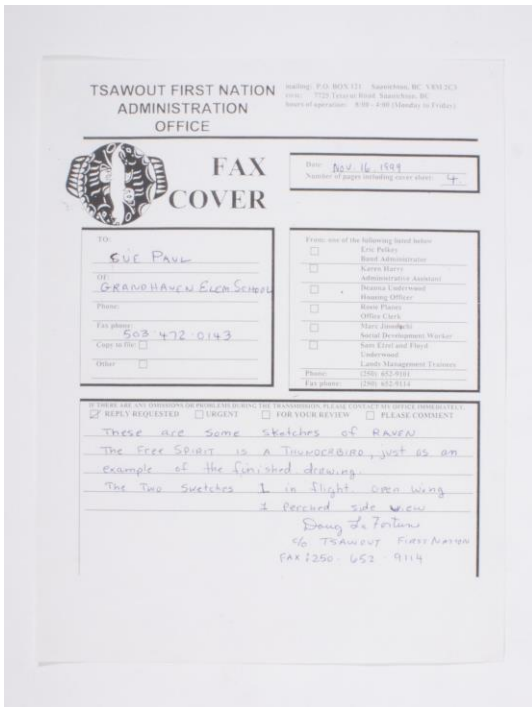 TSAWOUT FIRST NATION
ADMINISTRATION
OFFICE
mailing: P.O. BOX 121 Saanichton, BC V8M 2C3
7725 Tetayut Road Saanichton, BC
hours of operation: 8:00 - 4:00 (Monday to Friday)
FAX
COVER
Date: Nov. 16, 1999
Number of pages including cover sheet: 4
TO:
SUE PAUL
OF:
GRANDHAVEN ELEM SCHOOL
Phone:
Fax phone:
503-472-0143
Copy to file:
Other
From: one of the following listed below
Eric Pelkey
Band Administrator
Karen Harry
Administrative Assistant
Deanna Underwood
Housing Officer
Office Clerk
Mary
Social Development Worker
Sam Elzel and Floyd
Underwood
Lands Management Trainees
Phone: (250) 652-9101
Fax phone: (250) 652-9114
IF THERE ARE ANY OMISSIONS OR PROBLEMS DURING THE TRANSMISSION, PLEASE CONTACT MY OFFICE IMMEDIATELY.
REPLY REQUESTED URGENT FOR YOUR REVIEW PLEASE COMMENT
These are some sketches of RAVEN
The FREE SPIRIT IS A THUNDERBIRD, just as an
example of the finished drawing.
The Two Sketches 1 in flight open wing
1 Perched side view
Doug La Fortune
c/o TSAWOUT FIRST NATION
FAX 1250-652-9114